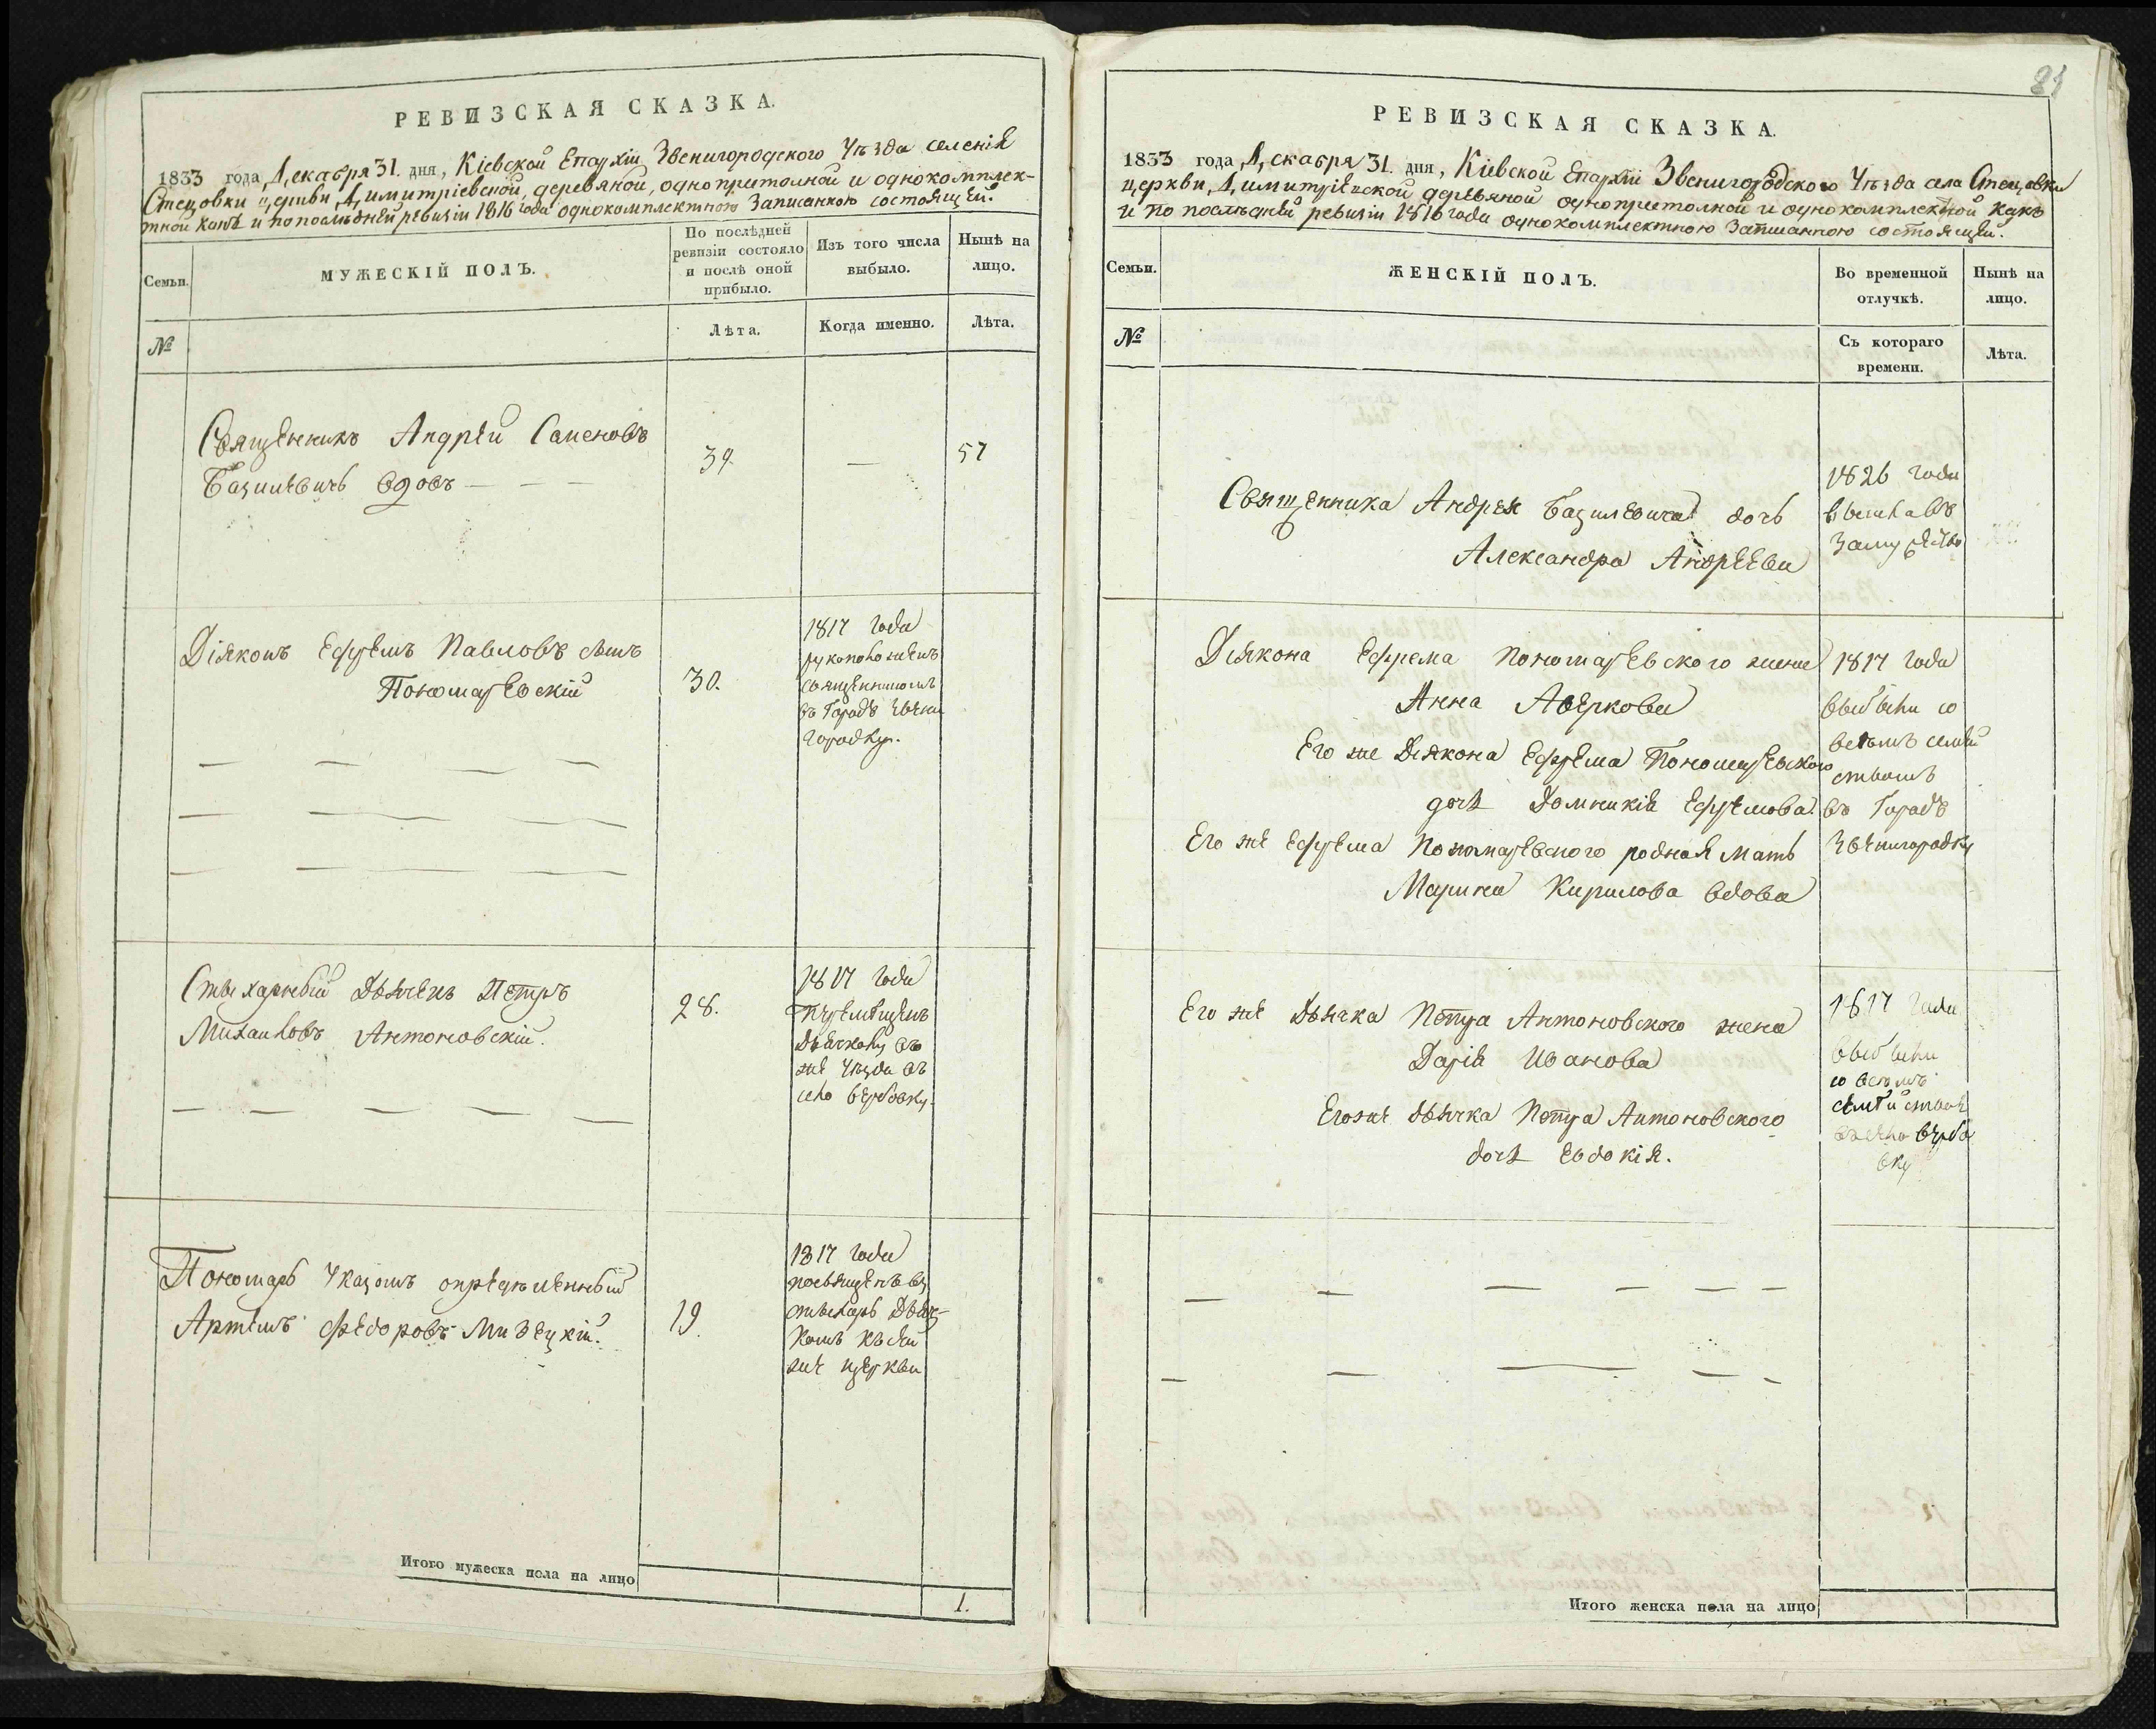 РЕВИЗСКАЯ СКАЗКА.
1833 года Декабря 31. дня, Кіевской Епархіи Звенигородского Уѣзда селенія
Стецовки церкви Димитріевской, деревяной, однопритолной и однокомплек-
тной какъ и по послѣдней ревизіи 1816 года однокомплектною записанною состоящей.
Семьи.
МУЖЕСКІЙ ПОЛЪ.
По послѣдней
ревизіи состояло
и послѣ оной
прибыло.
Изъ того числа
выбыло.
Нынѣ на
лицо.
№
Лѣта.
Когда именно.
Лѣта.
Священникъ Андрей Семеновъ
Базилевичъ вдовъ — — —
39.
—
57
Діяконъ Ефремъ Павловъ сынъ
Пономаревскій
30.
1817 года
рукоположенъ
священникомъ
въ Городъ Звени
городку.
Стыхарный Дьячекъ Петръ
Михаиловъ Антоновскій.
28.
1817 года
перемѣщенъ
Дьячкомъ въ
же Уѣзда въ
село Вербовку.
Пономарь Указомъ опредѣленный
Артемъ Федоровъ Мизецкій.
19.
1817 года
посвященъ въ
стыхарь Дьяч-
комъ къ сей
же церкви
Итого мужеска пола на лицо
1.
81
РЕВИЗСКАЯ СКАЗКА.
1833 года Декабря 31. дня, Кіевской Епархіи Звенигородского Уѣзда села Стецовки
церкви Димитріевской деревяной однопритолной и однокомплектной какъ
и по послѣдней ревизіи 1816 года однокомплектною записанною состоящей.
Семьи.
ЖЕНСКІЙ ПОЛЪ.
Во временной
отлучкѣ.
Нынѣ на
лицо.
№
Съ котораго
времени.
Лѣта.
Священника Андрея Базилевича дочь
Александра Андреева
1826 года
выехавъ
замужство
Діякона Ефрема Пономаревского жена
Анна Аверкова
Его же Діякона Ефрема Пономаревского
дочь Домникія Ефремова.
Его же Ефрема Пономаревского родная мать
Марина Кирилова вдова
1817 года
выбыли со
всѣмъ семей
ствомъ
въ Городъ
Звенигородку
Его же Дьячка Петра Антоновского жена
Дарія Иванова
Его же Дьячка Петра Антоновского
дочь Евдокія.
1817 года
выбыли
со всѣмъ
семействомъ
въ село Вербо
вку
Итого женска пола на лицо